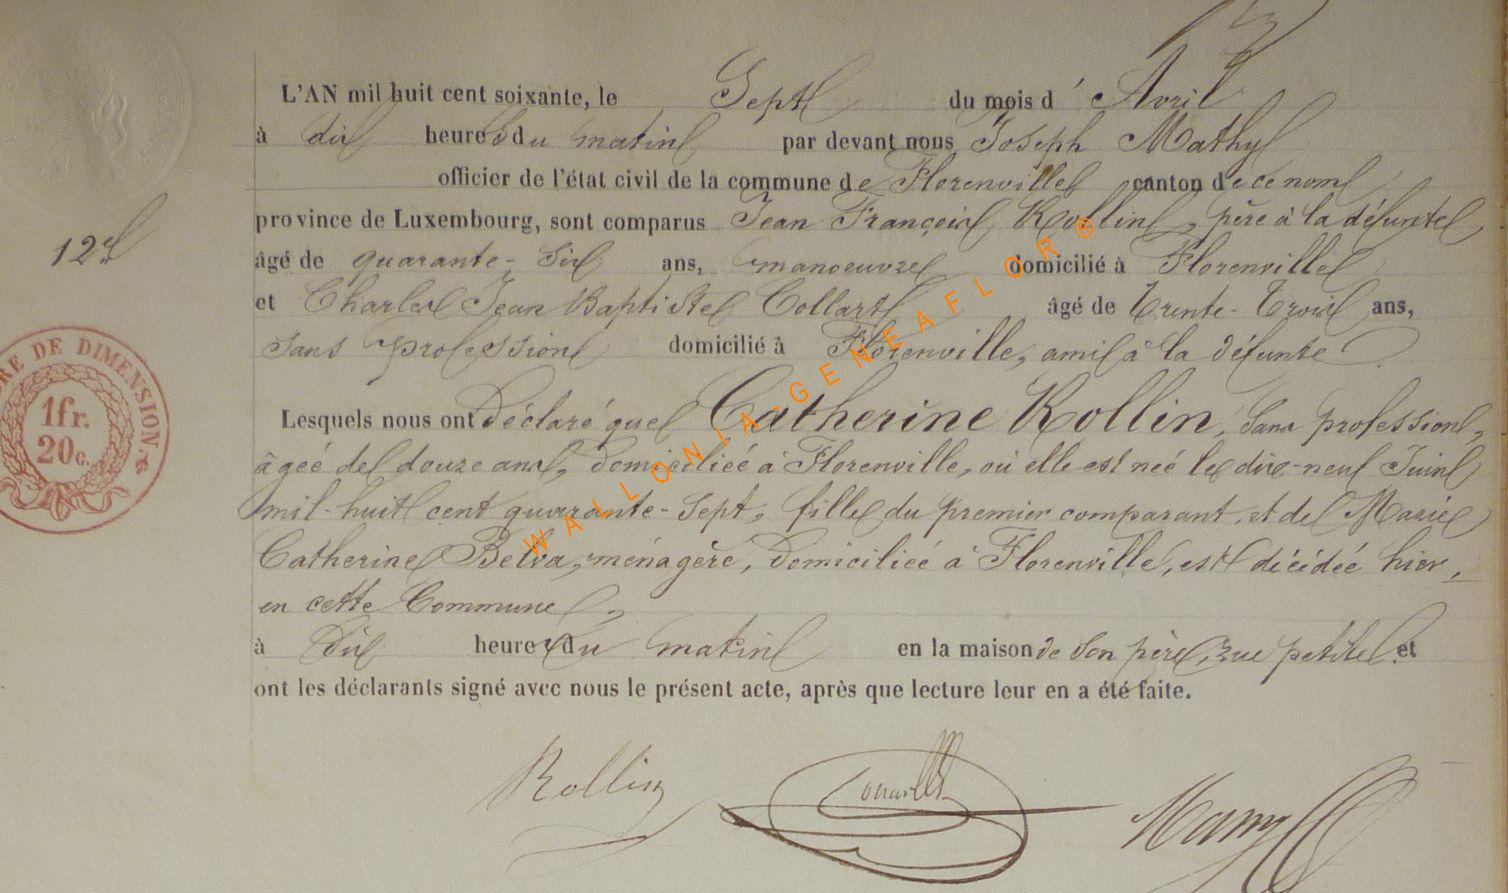 L'AN mil huit cent soixante, le Sept du mois d' Avril
à dix heures du matin par devant nous Joseph Mathy
officier de l'état civil de la commune de Florenville canton de ce nom
province de Luxembourg, sont comparus Jean François Rollin, père à la défunte
12e
âgé de quarante-six ans, manoeuvre domicilié à Florenville
et Charles Jean Baptiste Collart âgé de trente-trois ans,
sans profession domicilié à Florenville, ami à la défunte
TIMBRE DE DIMENSION.
1fr.
20c.
Lesquels nous ont déclaré que Catherine Rollin, sans profession,
âgée de douze ans, domiciliée à Florenville, où elle est née le dix-neuf Juin
mil-huit cent quarante-sept, fille du premier comparant, et de Marie
Catherine Belva, ménagère, domiciliée à Florenville, est décédée hier,
en cette Commune,
à dix heures du matin en la maison de son père, rue petite et
ont les déclarants signé avec nous le présent acte, après que lecture leur en a été faite.
Rollin
WALLONIA-GENEAFLOR©